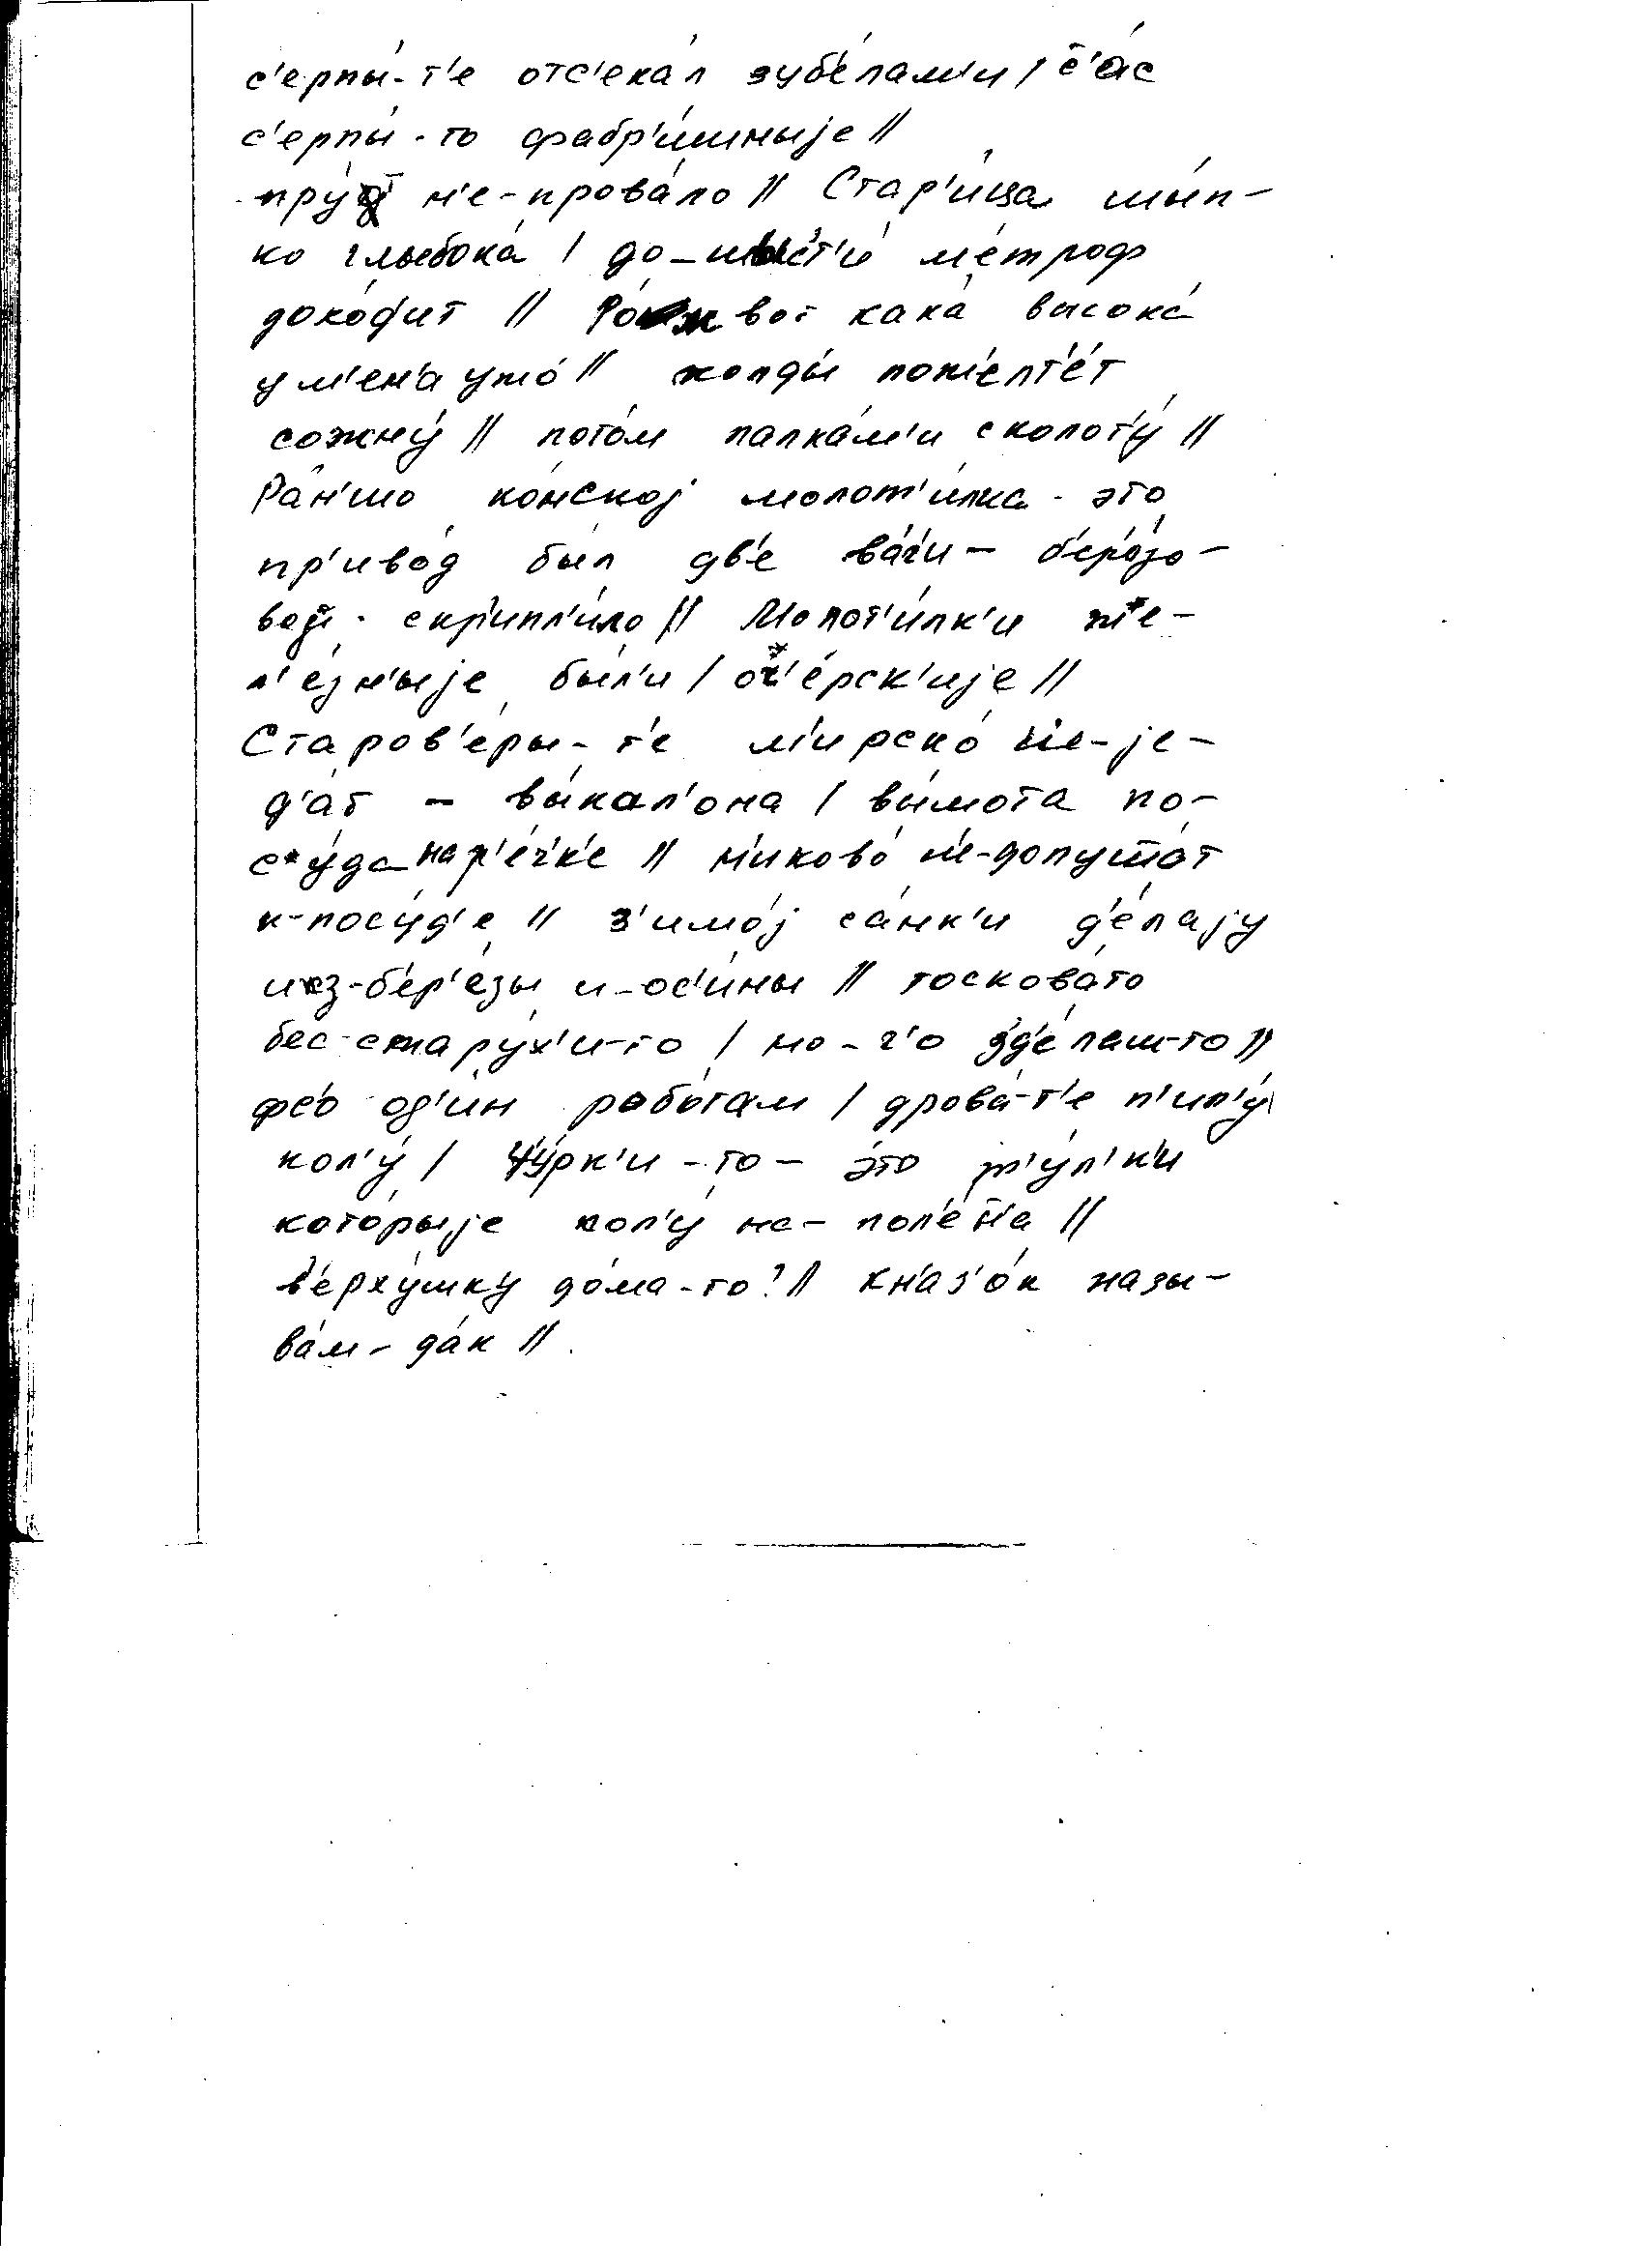 с'ерпы́-т'е отс'ека́л зубе́лам'и / с'а́с
с'ерпы́-то фабр'и́шныjе //
пру́д н'е-прова́ло // Стар'и́ца шы́п-
ко глыбока́ / до-шыст'и́ ме́троф
дохо́д'ит // Ро́ж вот кака́ высока́
у м'ен'а́ ужо́ // колды́ пожелт'е́т
сожну́ // пото́м палка́м'и сколоту́ //
Ра́н'шо ко́нскоj молот'и́лка - э́то
пр'иво́д бы́л две́ ва́ги - б'еро́зо-
вой - скр'ипл'и́ло // Молот'и́лк'и же-
л'е́зныjе бы́л'и / оч'е́рск'иjе //
Старов'е́ры-т'е м'ирско́ н'е-jе-
д'а́т - вы́кал'она / вы́мота по-
су́да на р'е́чк'е // н'иково́ н'е-допуша́т
к-посу́д'е // з'имо́j са́нк'и д'е́лаjу
из-б'ер'е́зы и-ос'и́ны // тоскова́то
бес-стару́х'и-то / но-ч'о зд'е́лаш-то //
фс'о од'и́н рабо́там / дрова́-т'е п'ил'у́
кол'у́ / чу́рк'и-то - э́то т'у́л'к'и
кото́рыjе кол'у́ на-пол'е́н'а //
в'ерху́шку до́ма-то? // кн'аз'о́к назы-
ва́м-да́к //